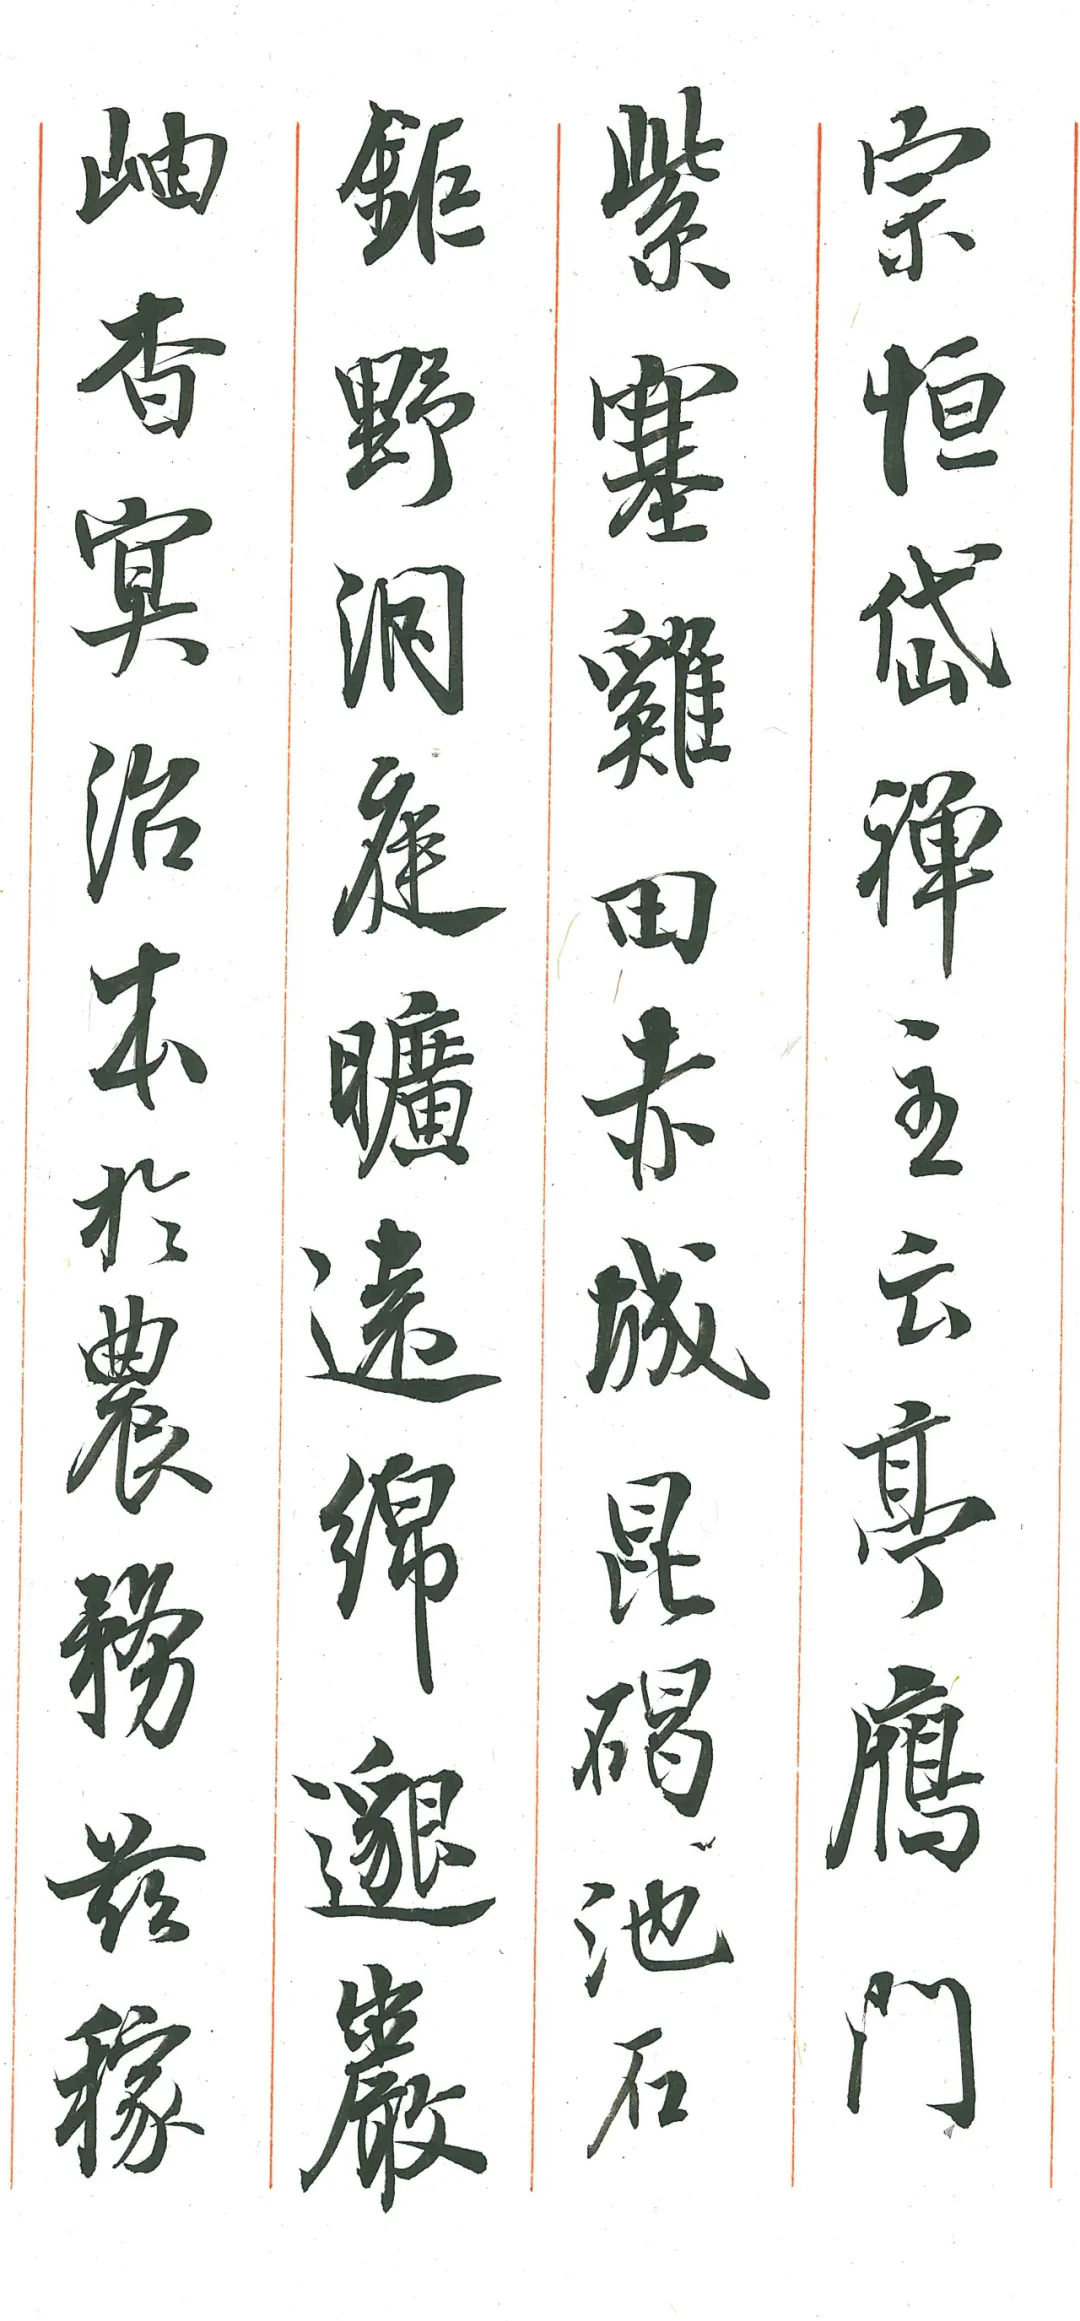 宗恒岱禪主云亭鴈門
紫塞雞田赤城昆碣池石
鉅野洞庭曠遠綿邈巖
岫杳冥治本於農務茲稼